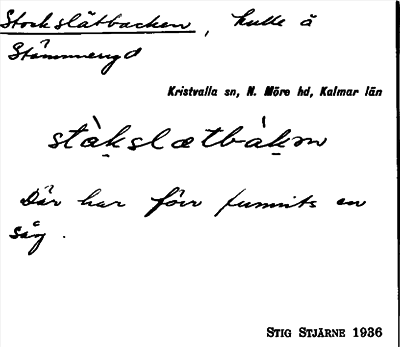 Stockslätbacken, kulle å
Stämmeryd
Kristvalla sn, N. Möre hd, Kalmar län
stàkslætbàkɐn
Där har förr funnits en
såg.
STIG STJÄRNE 1936